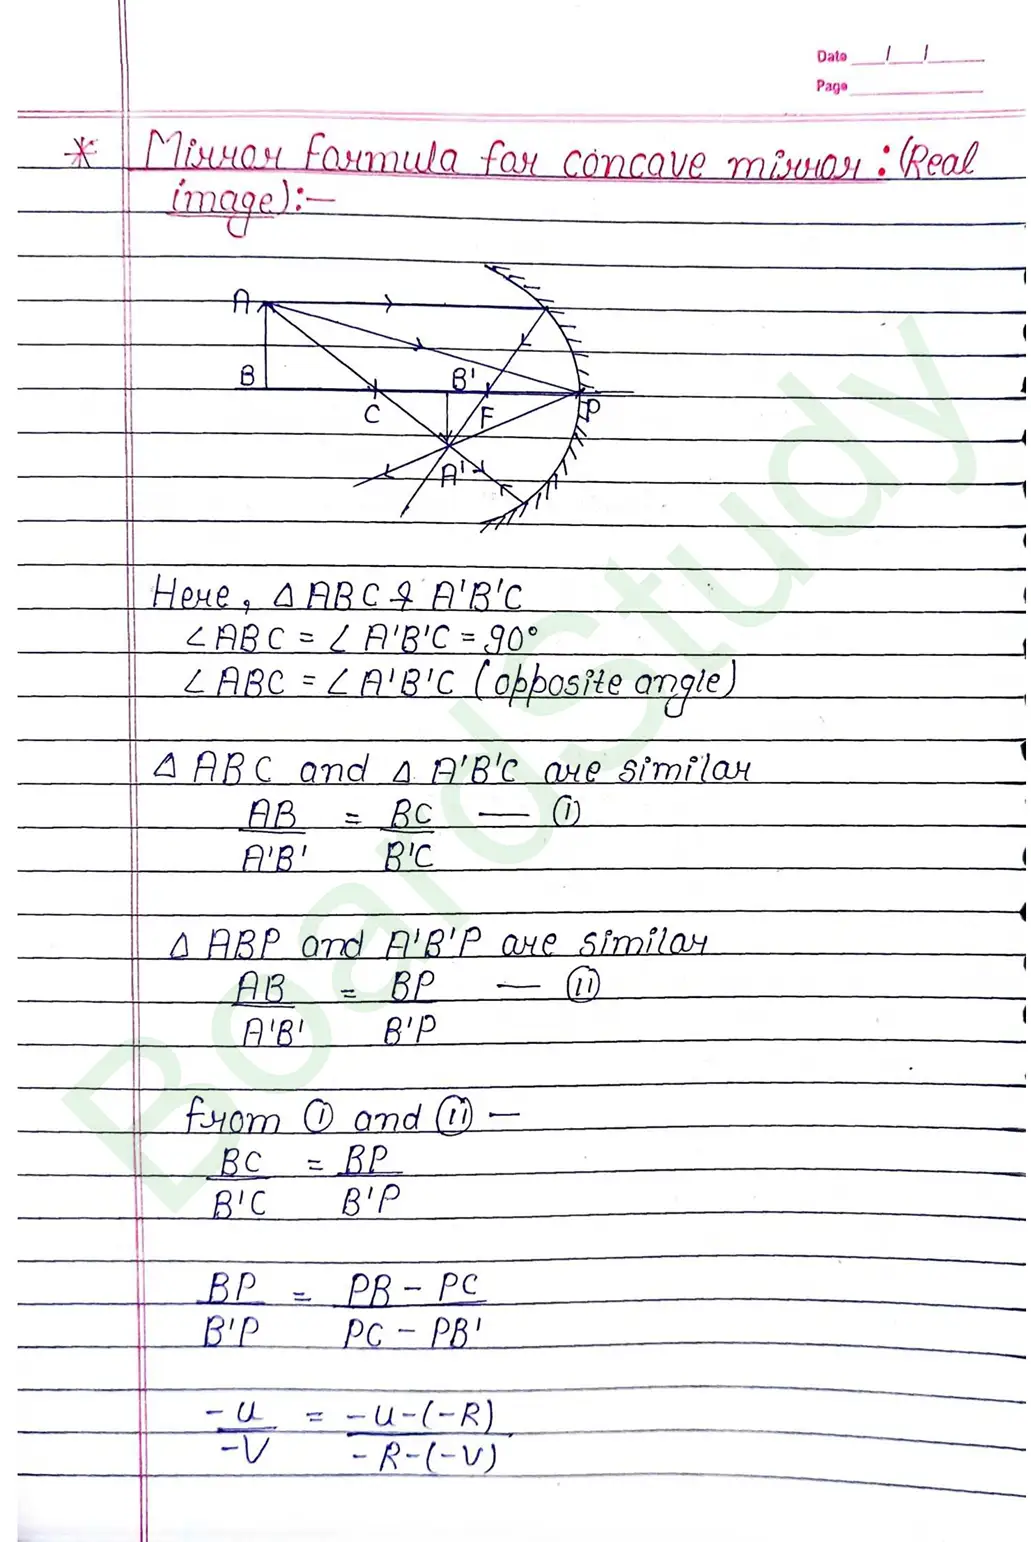 Date __/__/__
Page
* Mirror formula for concave mirror : (Real
image):-
A
B
B'
C
F
P
A'
Here, △ ABC & A'B'C
∠ABC = ∠ A'B'C = 90°
∠ABC = ∠A'B'C (opposite angle)
△ ABC and △ A'B'C are similar
AB = BC — (i)
A'B' B'C
△ ABP and A'B'P are similar
AB = BP — (ii)
A'B' B'P
from (i) and (ii) —
BC = BP
B'C B'P
BP = PB - PC
B'P PC - PB'
-u = -u-(-R)
-v -R-(-v)
BoardStudy